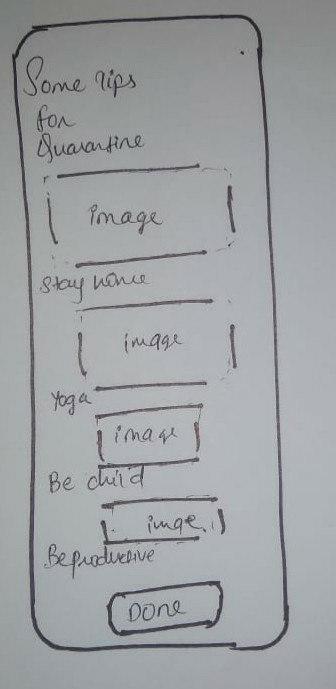 Some tips
for
Quarantine
image
Stay home
image
Yoga
image
Be child
imge
Be productive
DONE